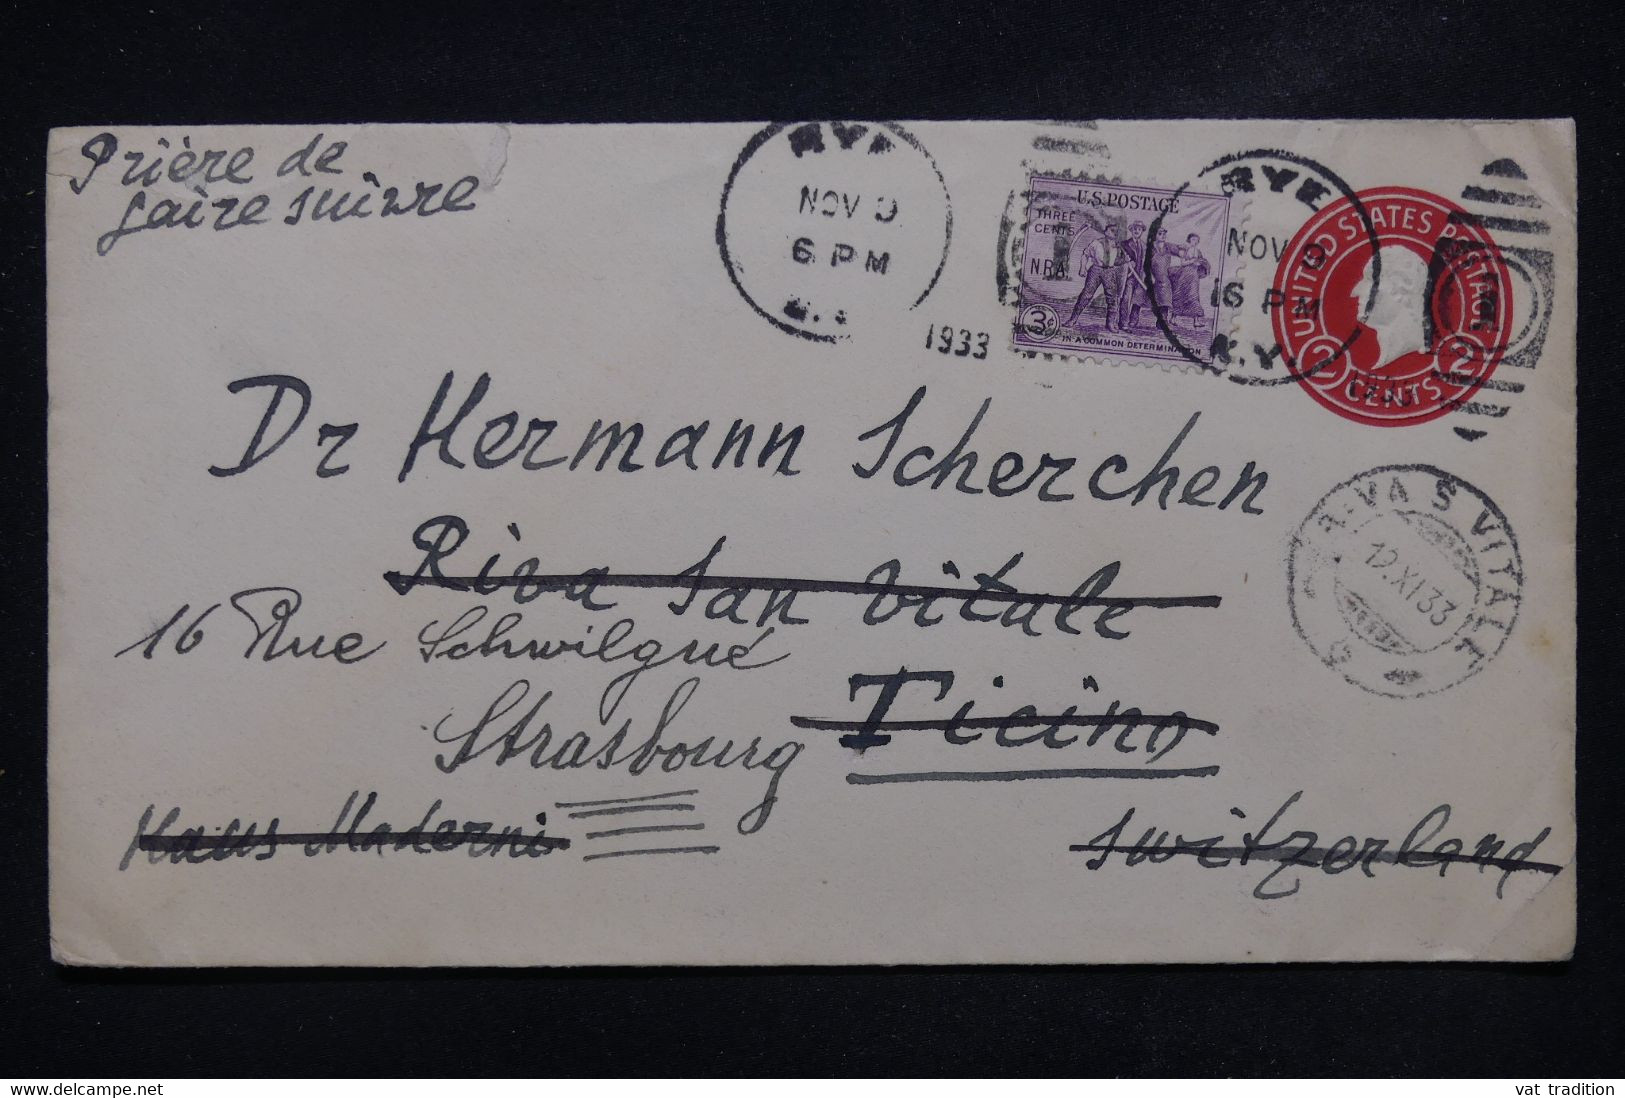 Prière de
faire suivre
RYE
NOV 9
6 PM
1933
U.S. POSTAGE
THREE
CENTS
N.R.A.
3¢
IN A COMMON DETERMINATION
RYE
NOV 9
6 PM
N.Y.
1933
UNITED STATES POSTAGE
2 CENTS 2
Dr Hermann Scherchen
Riva San Vitale
16 Rue Schwilgué
Ticino
Strasbourg
Haus Maderni
Switzerland
RIVA S VITALE
12.XI.33
delcampe.net
vat tradition